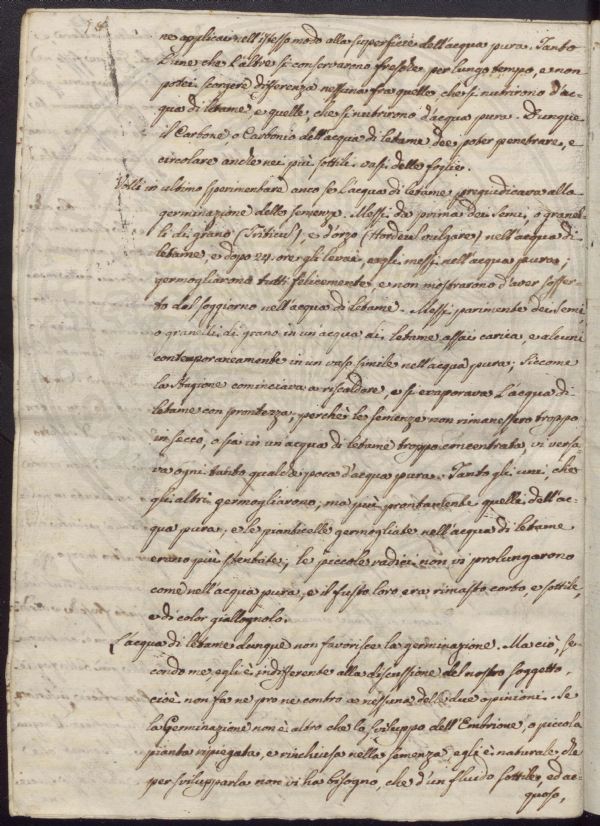 ne applicai nell'istesso modo alla superficie dell'acqua pura. Tanto
l'une che l'altre si conservarono fresche per lungo tempo, e non
potei scorgere differenza nessuna fra quelle che si nutrirono d'ac-
qua di letame e quelle, che si nutrirono d'acqua pura. Dunque
il Carbone o Carbonio dell'acqua di letame dee poter penetrare, e
circolare anche nei più sottili vasi delle foglie.
Volli in ultimo sperimentare anco se l'acqua di letame pregiudicava alla
germinazione delle semenze. Messi da prima dei semi, o granel-
li di grano (Triticum), e d'orzo (Hordeum vulgare) nell'acqua di
letame, e dopo 24. ore gli levai, e gli messi nell'acqua pura;
germogliarono tutti felicemente e non mostrarono d'aver soffer-
to dal soggiorno nell'acqua di letame. Messi parimente dei semi,
o granelli di grano in un'acqua di letame assai carica, e alcuni
contemporaneamente in un vaso simile nell'acqua pura; Siccome
la stagione cominciava a riscaldare, e si evaporava l'acqua di
letame con prontezza, perchè le semenze non rimanessero troppo
in secco, o sia in un'acqua di letame troppo concentrata, vi versa-
va ogni tanto qualche poca d'acqua pura. Tanto gli uni, che
gli altri germogliarono, ma più prontamente quelli dell'ac-
qua pura, e le pianticelle germogliate nell'acqua di letame
erano più stentate; le piccole radici non vi prolungarono
come nell'acqua pura, e il fusto loro era rimasto corto, e sottile,
e di color giallognolo.
L'acqua di letame dunque non favorisce la germinazione. Ma ciò, se-
condo me, egli è indifferente alla discussione del nostro soggetto,
cioè non fa nè pro nè contro a nessuna delle due opinioni. Se
la Germinazione non è altro che lo sviluppo dell'Embrione, o piccola
pianta ripiegata, e rinchiusa nella semenza egli è naturale che
per svilupparla non vi ha bisogno, che d'un fluido sottile, ed ac-
quoso,